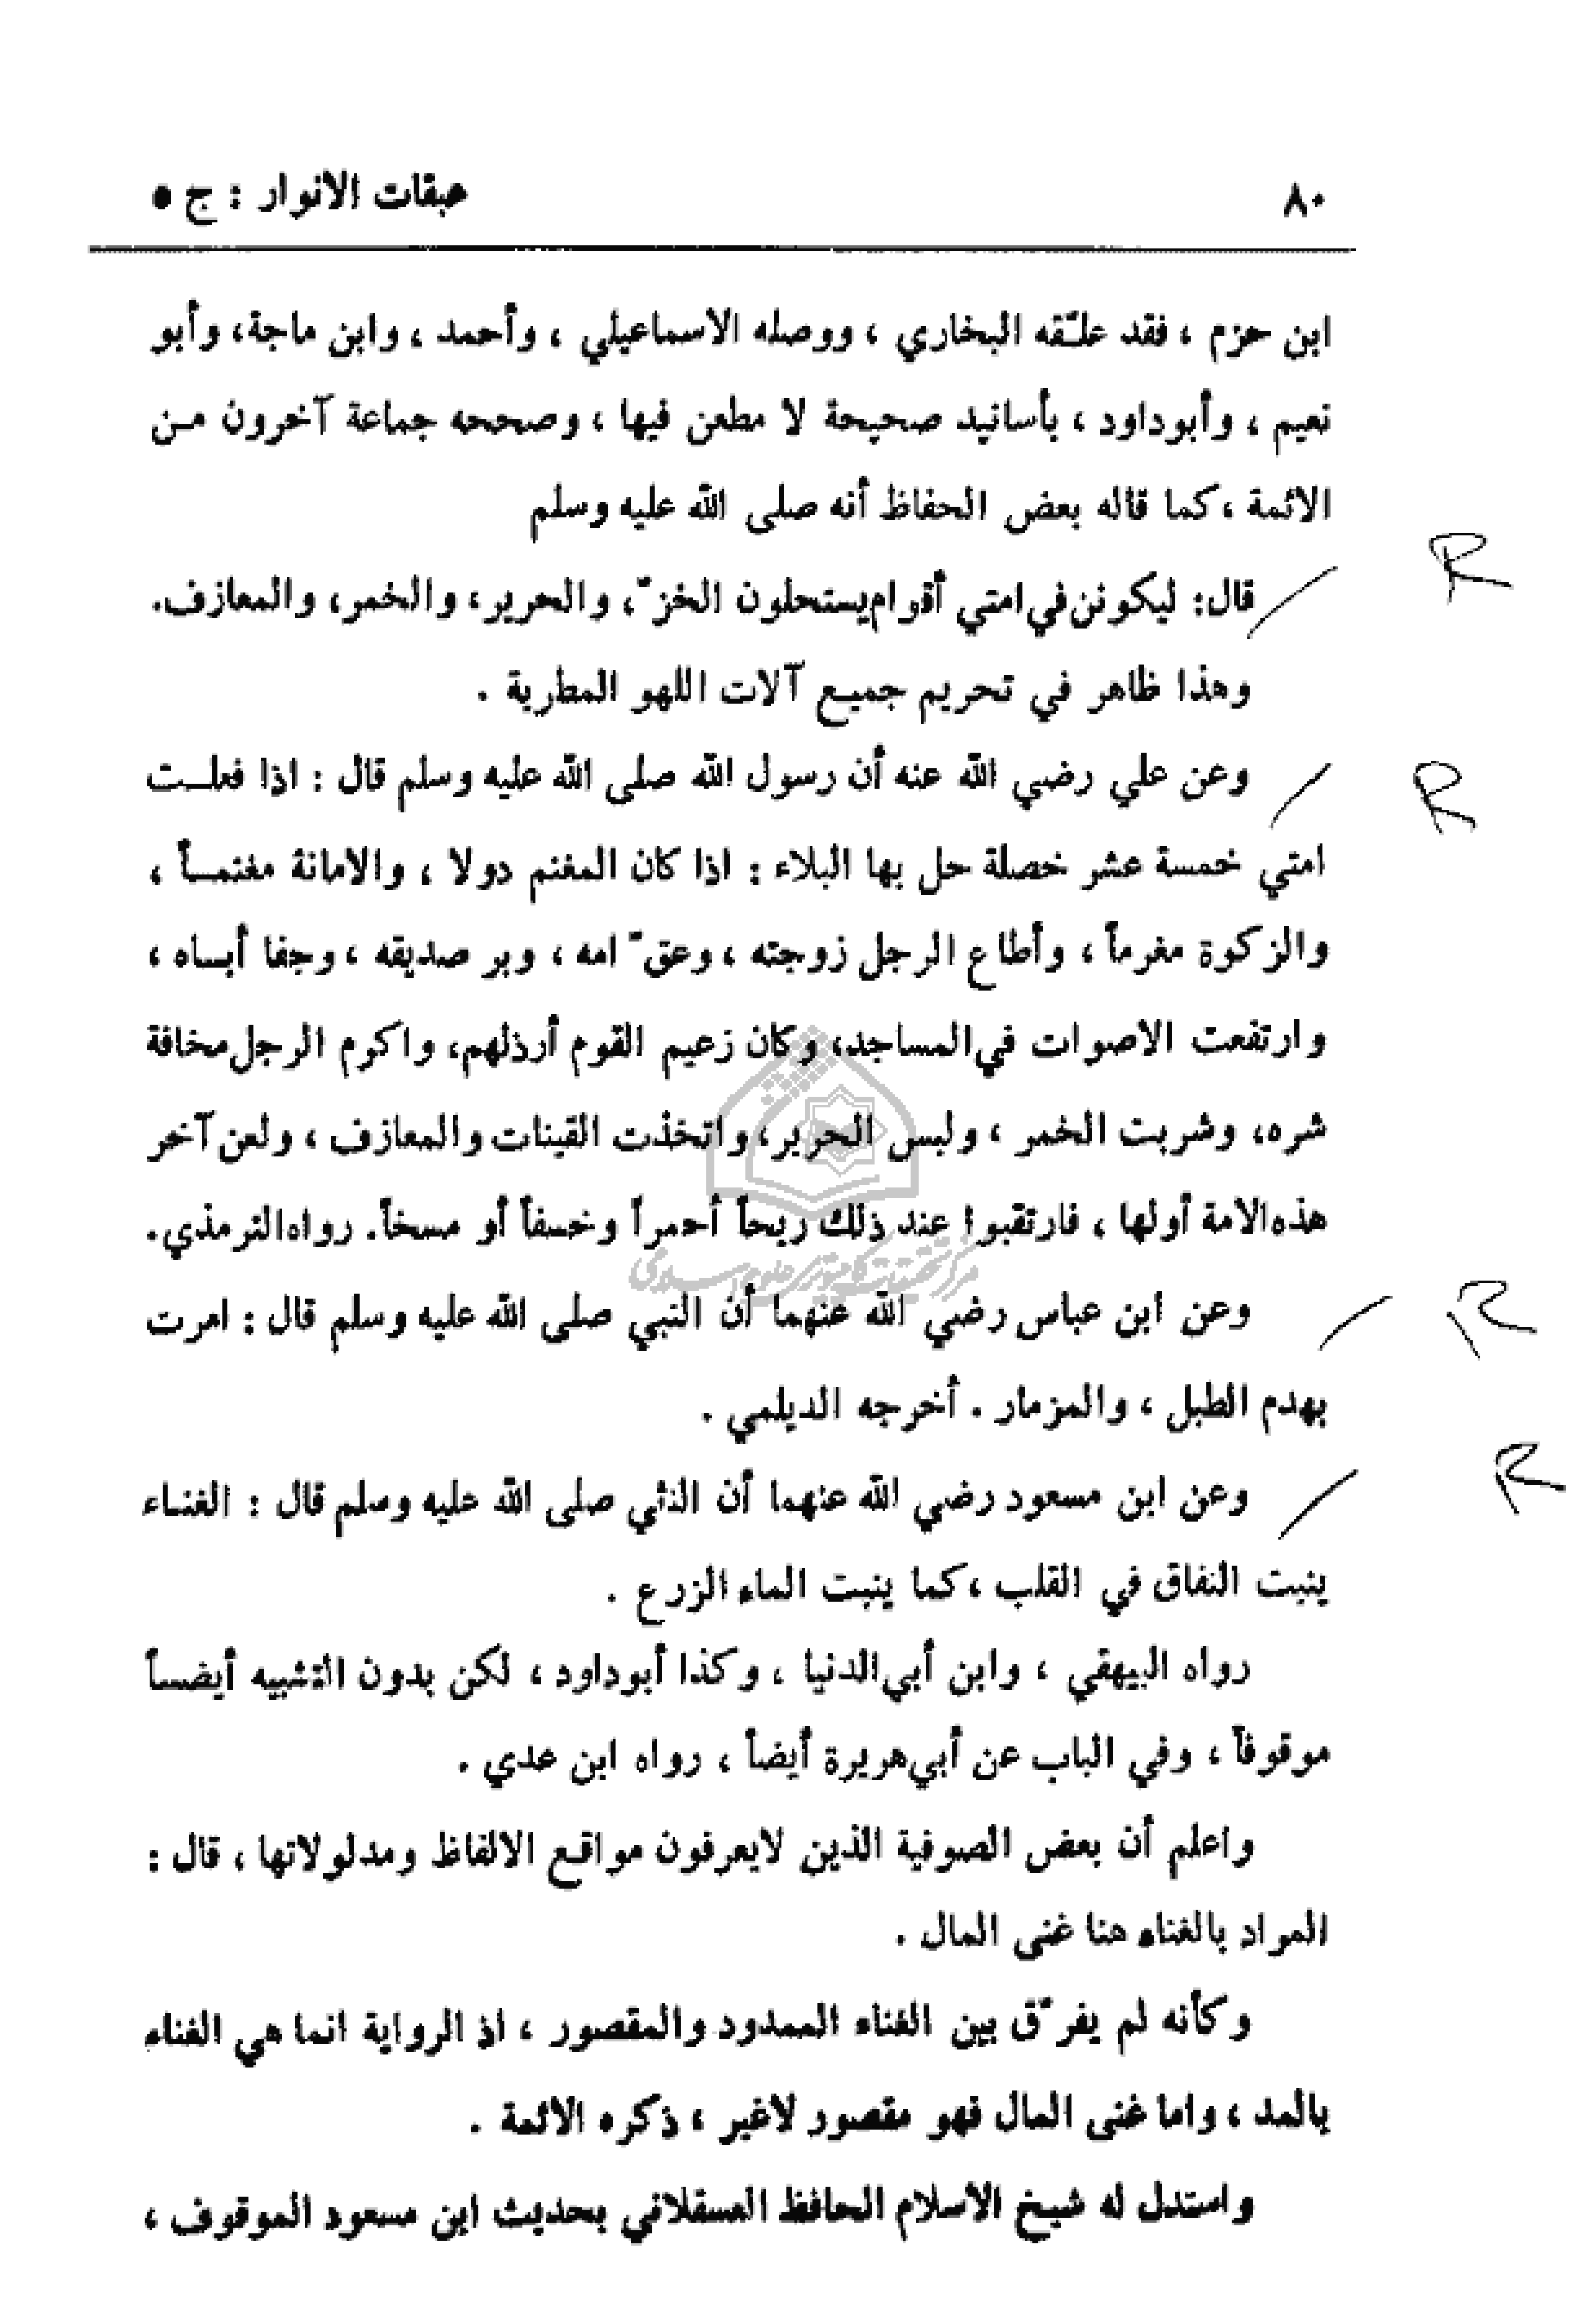 ٨٠ عبقات الانوار : ج ٥
ابن حزم ، فقد علّقه البخاري ، ووصله الاسماعيلي ، وأحمد ، وابن ماجة، وأبو
نعيم ، وأبوداود ، بأسانيد صحيحة لا مطعن فيها ، وصححه جماعة آخرون مـن
الائمة ، كما قاله بعض الحفاظ أنه صلى الله عليه وسلم
قال: ليكونن في امتي أقوام يستحلون الخزّ، والحرير، والخمر، والمعازف.
R
وهذا ظاهر في تحريم جميـع آلات اللهو المطربة .
وعن علي رضي الله عنه أن رسول الله صلى الله عليه وسلم قال : اذا فعلــت
R
امتي خمسة عشر خصلة حل بها البلاء : اذا كان المغنم دولا ، والامانة مغنمــاً ،
والزكوة مغرماً ، وأطاع الرجل زوجته ، وعقّ امه ، وبر صديقه ، وجفا أبـاه ،
وارتفعت الاصوات في المساجد، وكان زعيم القوم أرذلهم، واكرم الرجل مخافة
شره، وشربت الخمر ، ولبس الحرير، واتخذت القينات والمعازف ، ولعن آخر
هذه الامة أولها ، فارتقبوا عند ذلك ريحاً أحمراً وخسفاً أو مسخاً. رواه الترمذي.
مركز تحقيقات كامپيوتري علوم اسلامي
وعن ابن عباس رضي الله عنهما أن النبي صلى الله عليه وسلم قال : امرت
R
بهدم الطبل ، والمزمار . أخرجه الديلمي .
وعن ابن مسعود رضي الله عنهما أن النبي صلى الله عليه وسلم قال : الغنـاء
R
ينبت النفاق في القلب ، كما ينبت الماء الزرع .
رواه البيهقي ، وابن أبي الدنيا ، وكذا أبوداود ، لكن بدون التشبيه أيضـاً
موقوفاً ، وفي الباب عن أبي هريرة أيضاً ، رواه ابن عدي .
واعلم أن بعض الصوفية الذين لايعرفون مواقع الالفاظ ومدلولاتها ، قال :
المراد بالغناء هنا غنى المال .
وكأنه لم يفرّق بين الغناء الممدود والمقصور ، اذ الرواية انما هي الغناء
بالمد ، واما غنى المال فهو مقصور لاغير ، ذكره الائمة .
واستدل له شيخ الاسلام الحافظ العسقلاني بحديث ابن مسعود الموقوف ،